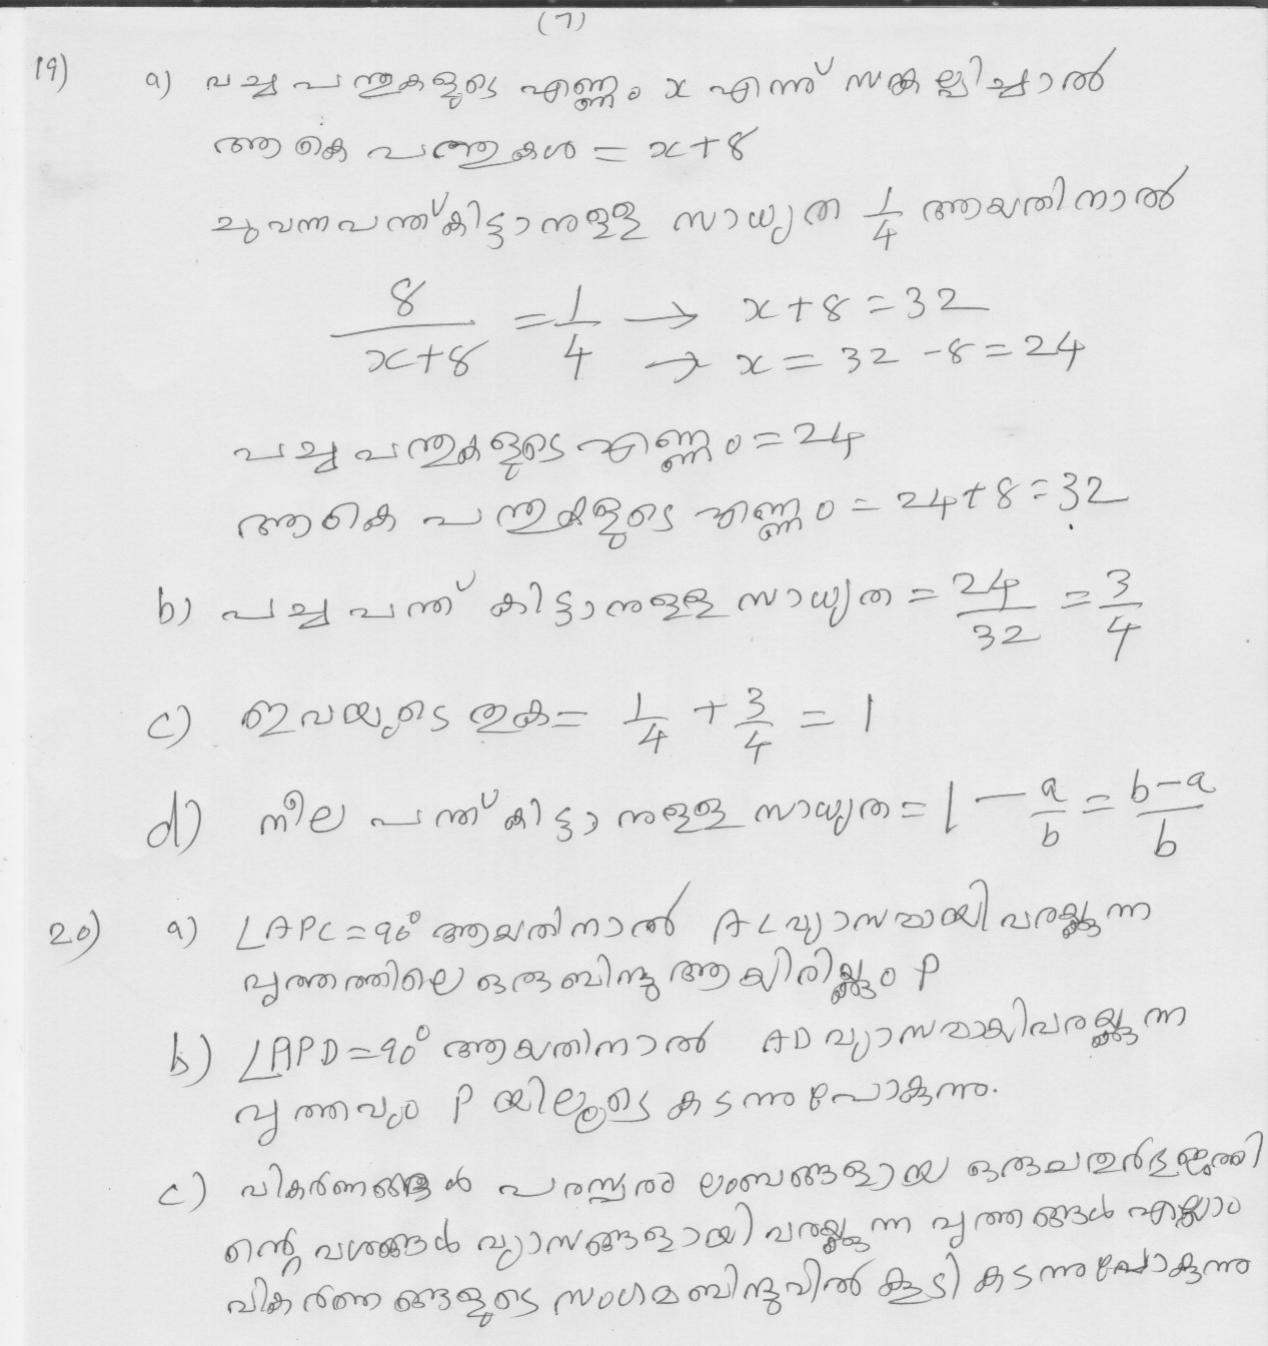 (7)
19) a) പച്ച പന്തുകളുടെ എണ്ണം x എന്ന് സങ്കല്പിച്ചാൽ
ആകെ പന്തുകൾ = x+8
ചുവന്ന പന്ത് കിട്ടാനുള്ള സാധ്യത 1/4 ആയതിനാൽ
8/(x+8) = 1/4 → x+8=32
→ x = 32 -8=24
പച്ച പന്തുകളുടെ എണ്ണം = 24
ആകെ പന്തുകളുടെ എണ്ണം = 24+8=32
b) പച്ച പന്ത് കിട്ടാനുള്ള സാധ്യത = 24/32 = 3/4
c) ഇവയുടെ തുക = 1/4 + 3/4 = 1
d) നീല പന്ത് കിട്ടാനുള്ള സാധ്യത = 1 - a/b = (b-a)/b
20) a) ∠APC=90° ആയതിനാൽ AC വ്യാസമായി വരയ്ക്കുന്ന
വൃത്തത്തിലെ ഒരു ബിന്ദു ആയിരിയ്ക്കും P
b) ∠APD=90° ആയതിനാൽ AD വ്യാസമായി വരയ്ക്കുന്ന
വൃത്തവും P യിലൂടെ കടന്നുപോകുന്നു.
c) വികർണങ്ങൾ പരസ്പരം ലംബങ്ങളായ ഒരു ചതുർഭുജത്തി
ന്റെ വശങ്ങൾ വ്യാസങ്ങളായി വരയ്ക്കുന്ന വൃത്തങ്ങൾ എല്ലാം
വികർണങ്ങളുടെ സംഗമബിന്ദുവിൽ കൂടി കടന്നുപോകുന്നു